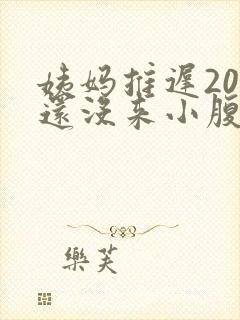 姨妈推遲20
還沒来小腹
樂芙